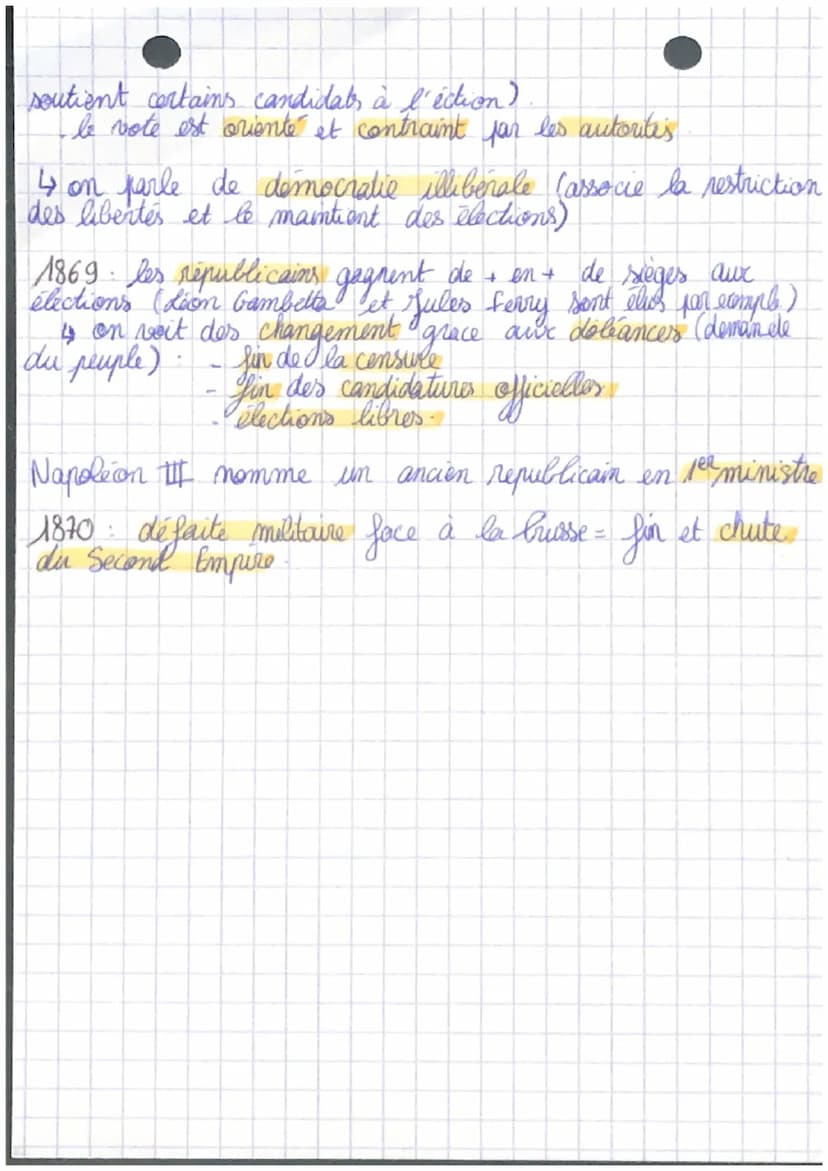 soutient certains candidats à l'éction).
. le vote est orienté et contraint par les autorités
↳ on parle de démocratie illibérale (associe la restriction
des libertés et le maintient des élections)
1869 : les républicains gagnent de + en + de sièges aux
élections (Léon Gambetta et Jules Ferry sont élus par exemple)
↳ on voit des changement grace aux doléances (demande
du peuple) : - fin de la censure
- fin des candidatures officielles
- élections libres.
Napoléon III nomme un ancien republicain en 1er ministre
1870 : défaite militaire face à la Prusse = fin et chute
du Second Empire.